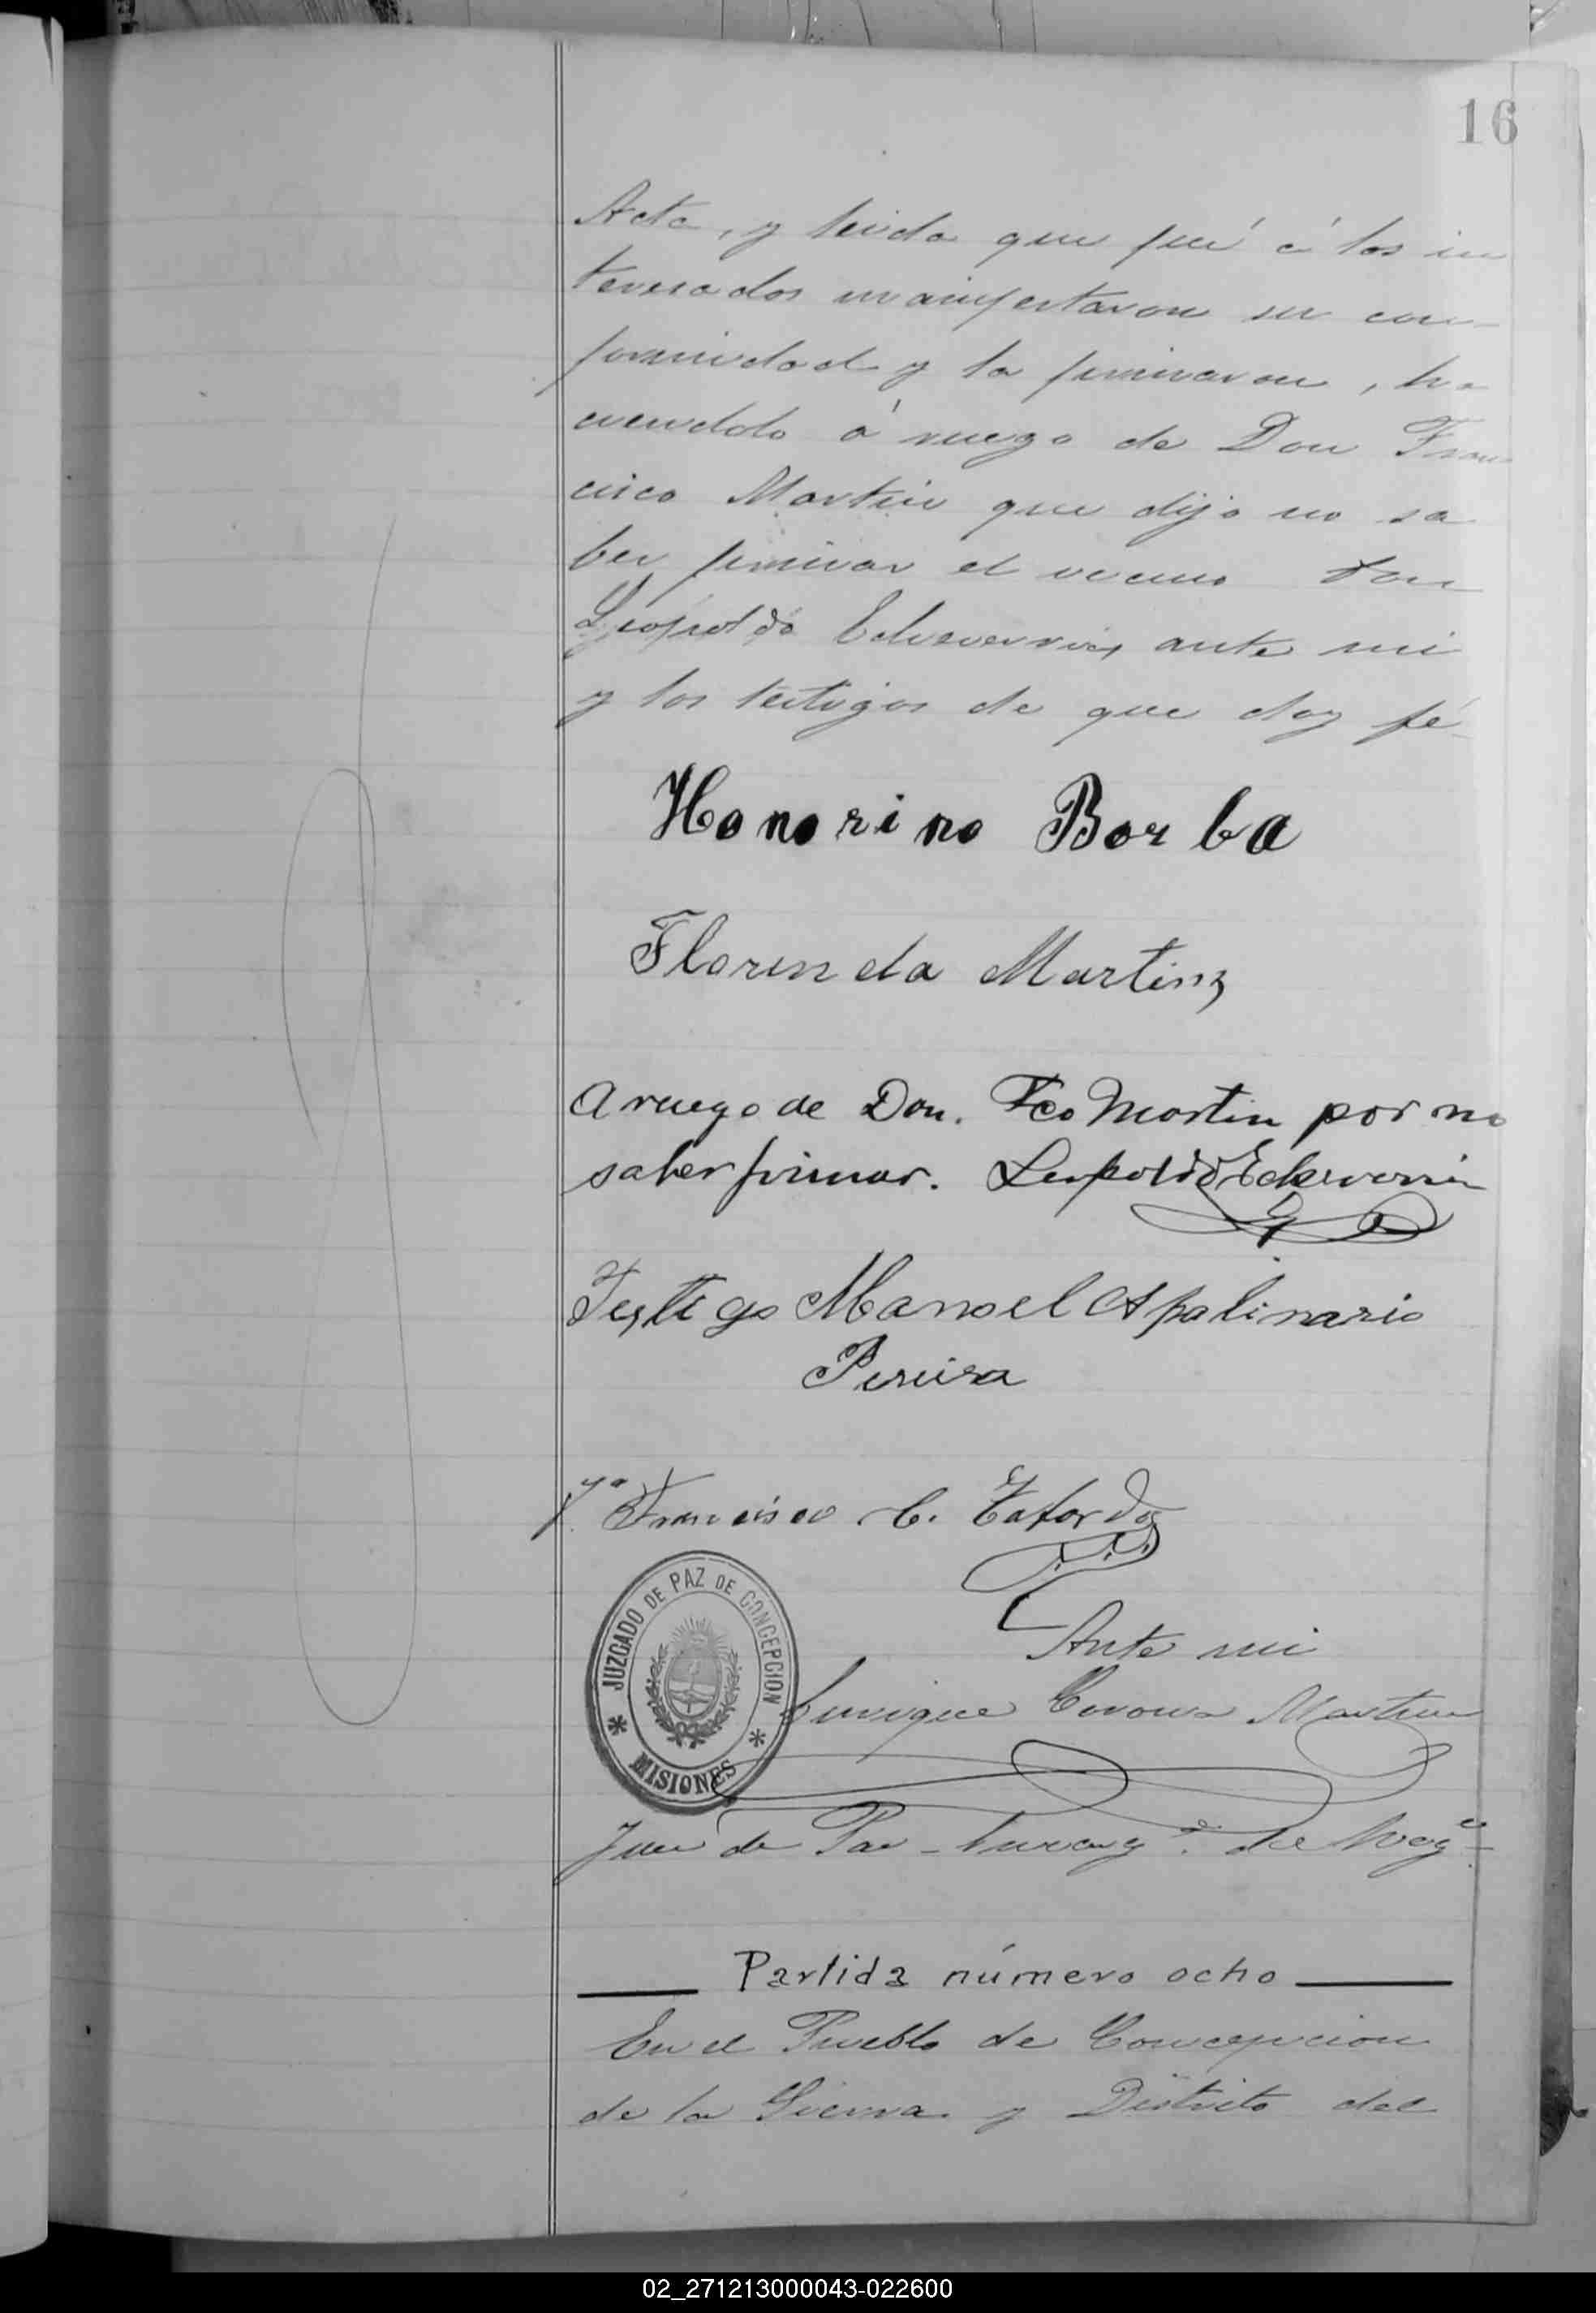 16
Acta, y leida que fué á los in
teresados manifestaron su con-
formidad y la firmaron, ha
ciendolo á ruego de Don Fran
cisco Martin que dijo no sa
ber firmar el vecino Don
Leopoldo Echeverria, ante mi
y los testigos de que doy fé-
Honorino Borba
Florinda Martinz
A ruego de Don. Fco Martin por no
saber firmar. Leopoldo Echeverria
Testigo Manoel Apalinario
Pereira
Tº Francisco C.
JUZGADO DE PAZ DE CONCEPCION
* MISIONES *
Ante mi
Enrique Corona Martinez
Juez de Paz - Encargº. del Regº
Partida número ocho
En el Pueblo de Concepcion
de la Sierra y Distrito del
02_271213000043-022600